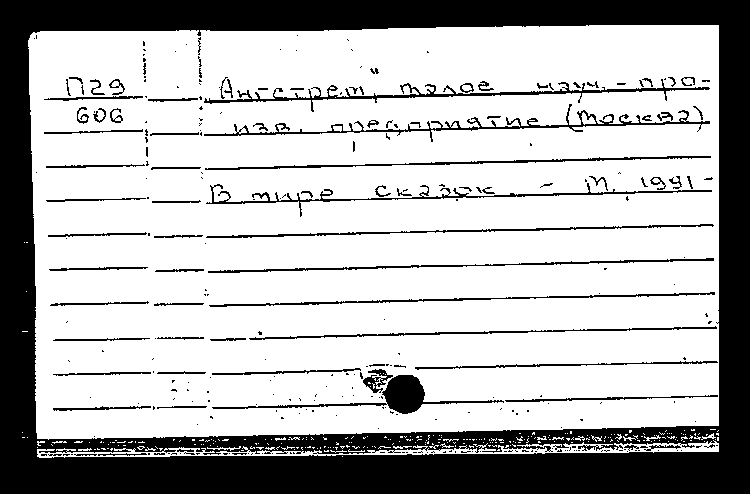 П29
606
Ангстрем", малое науч. - про-
изв. предприятие (Москва)
В мире сказок. - М., 1991-